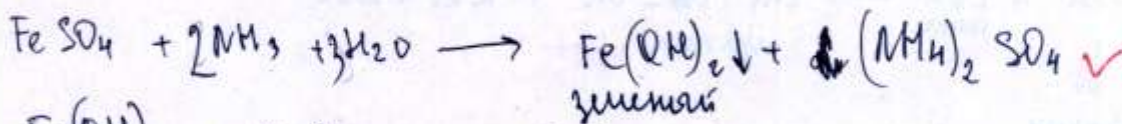 FeSO₄ + 2NH₃ + 3H₂O ⟶ Fe(OH)₂↓ + (NH₄)₂SO₄ ✓
зеленый
Fe(OH)